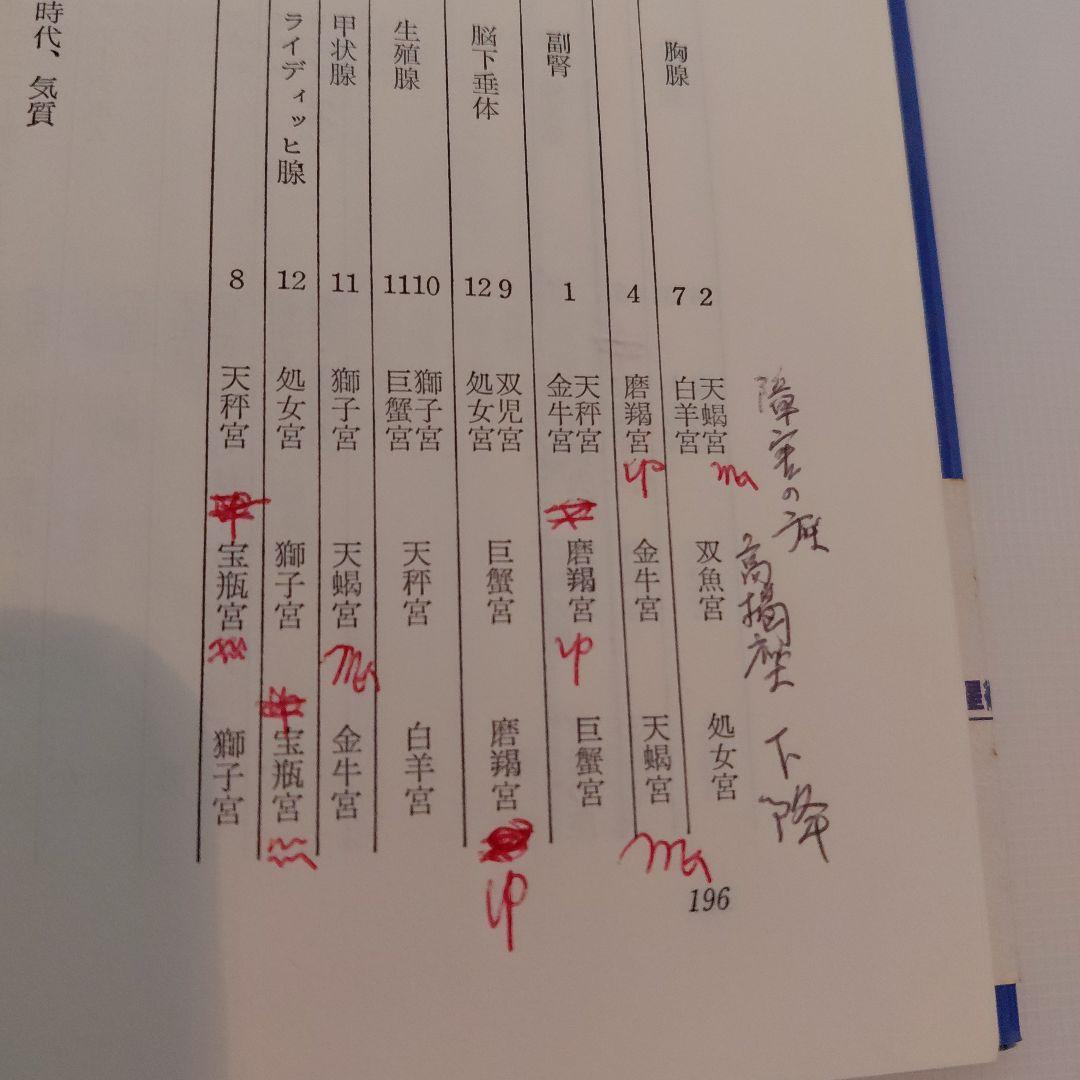 障害の座
高揚座
下降
胸腺
2 天蝎宮 双魚宮 処女宮
7 白羊宮
4 磨羯宮 金牛宮 天蝎宮
副腎
1 天秤宮 磨羯宮 巨蟹宮
金牛宮
脳下垂体
9 双児宮 巨蟹宮 磨羯宮
12 処女宮
生殖腺
10 獅子宮 天秤宮 白羊宮
11 巨蟹宮
甲状腺
11 獅子宮 天蝎宮 金牛宮
ライディッヒ腺
12 処女宮 獅子宮 宝瓶宮
8 天秤宮 宝瓶宮 獅子宮
時代、気質
196